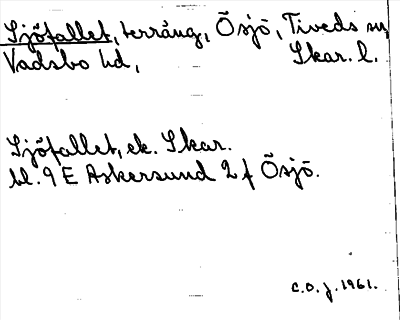 Sjöfallet, terräng, Ösjö, Tiveds sn
Vadsbo hd, Skar. l.
Sjöfallet, ek. Skar.
bl. 9 E Askersund 2 f Ösjö.
C.O.J. 1961.